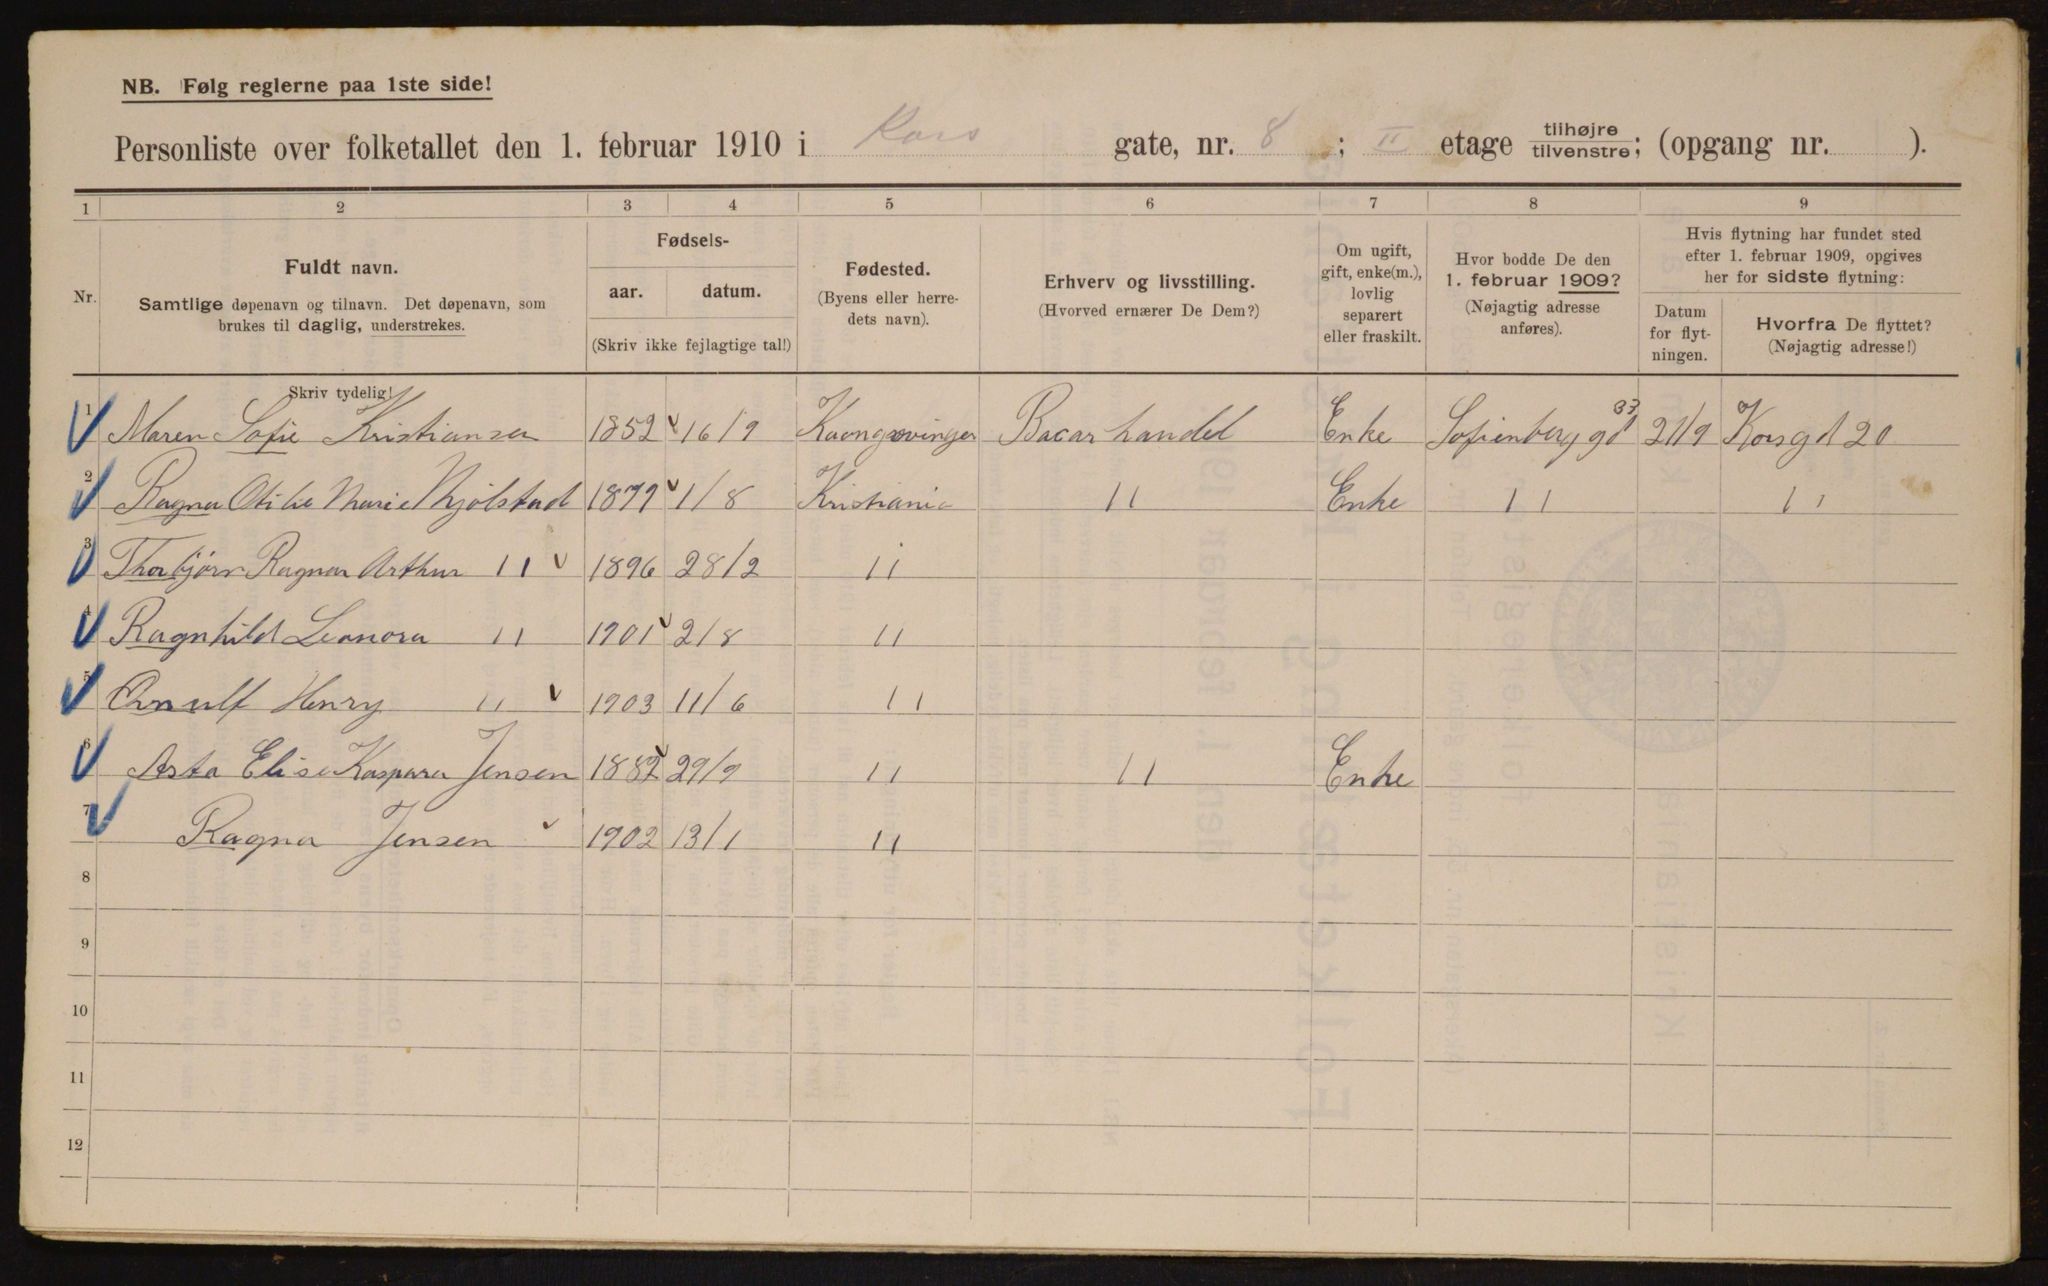 NB. Følg reglerne paa 1ste side!
Personliste over folketallet den 1. februar 1910 i Kors gate, nr. 8 ; II etage tilhøjre tilvenstre; (opgang nr. ).
1 2 3 4 5 6 7 8 9
Nr.
Fuldt navn.
Samtlige døpenavn og tilnavn. Det døpenavn, som
brukes til daglig, understrekes.
Fødsels-
aar. datum.
(Skriv ikke fejlagtige tal!)
Fødested.
(Byens eller herre-
dets navn).
Erhverv og livsstilling.
(Hvorved ernærer De Dem?)
Om ugift,
gift, enke(m.),
lovlig
separert
eller fraskilt.
Hvor bodde De den
1. februar 1909?
(Nøjagtig adresse
anføres).
Hvis flytning har fundet sted
efter 1. februar 1909, opgives
her for sidste flytning:
Datum
for flyt-
ningen.
Hvorfra De flyttet?
(Nøjagtig adresse!)
Skriv tydelig!
1 Maren Sofie Kristiansen 1852 16/9 Kaongsvinger Bacarhandel Enke Sofienberg gd 37 21/9 Korsgd 20
2 Ragna Otilie Marie Mjølstad 1879 1/8 Kristiania 11 Enke 11 11
3 Thorbjørn Ragnar Arthur 11 1896 28/2 11
4 Ragnhild Leonora 11 1901 2/8 11
5 Arnulf Henry 11 1903 11/6 11
6 Asta Elise Kaspara Jensen 1882 29/9 11 11 Enke
7 Ragna Jensen 1902 13/1 11
8
9
10
11
12